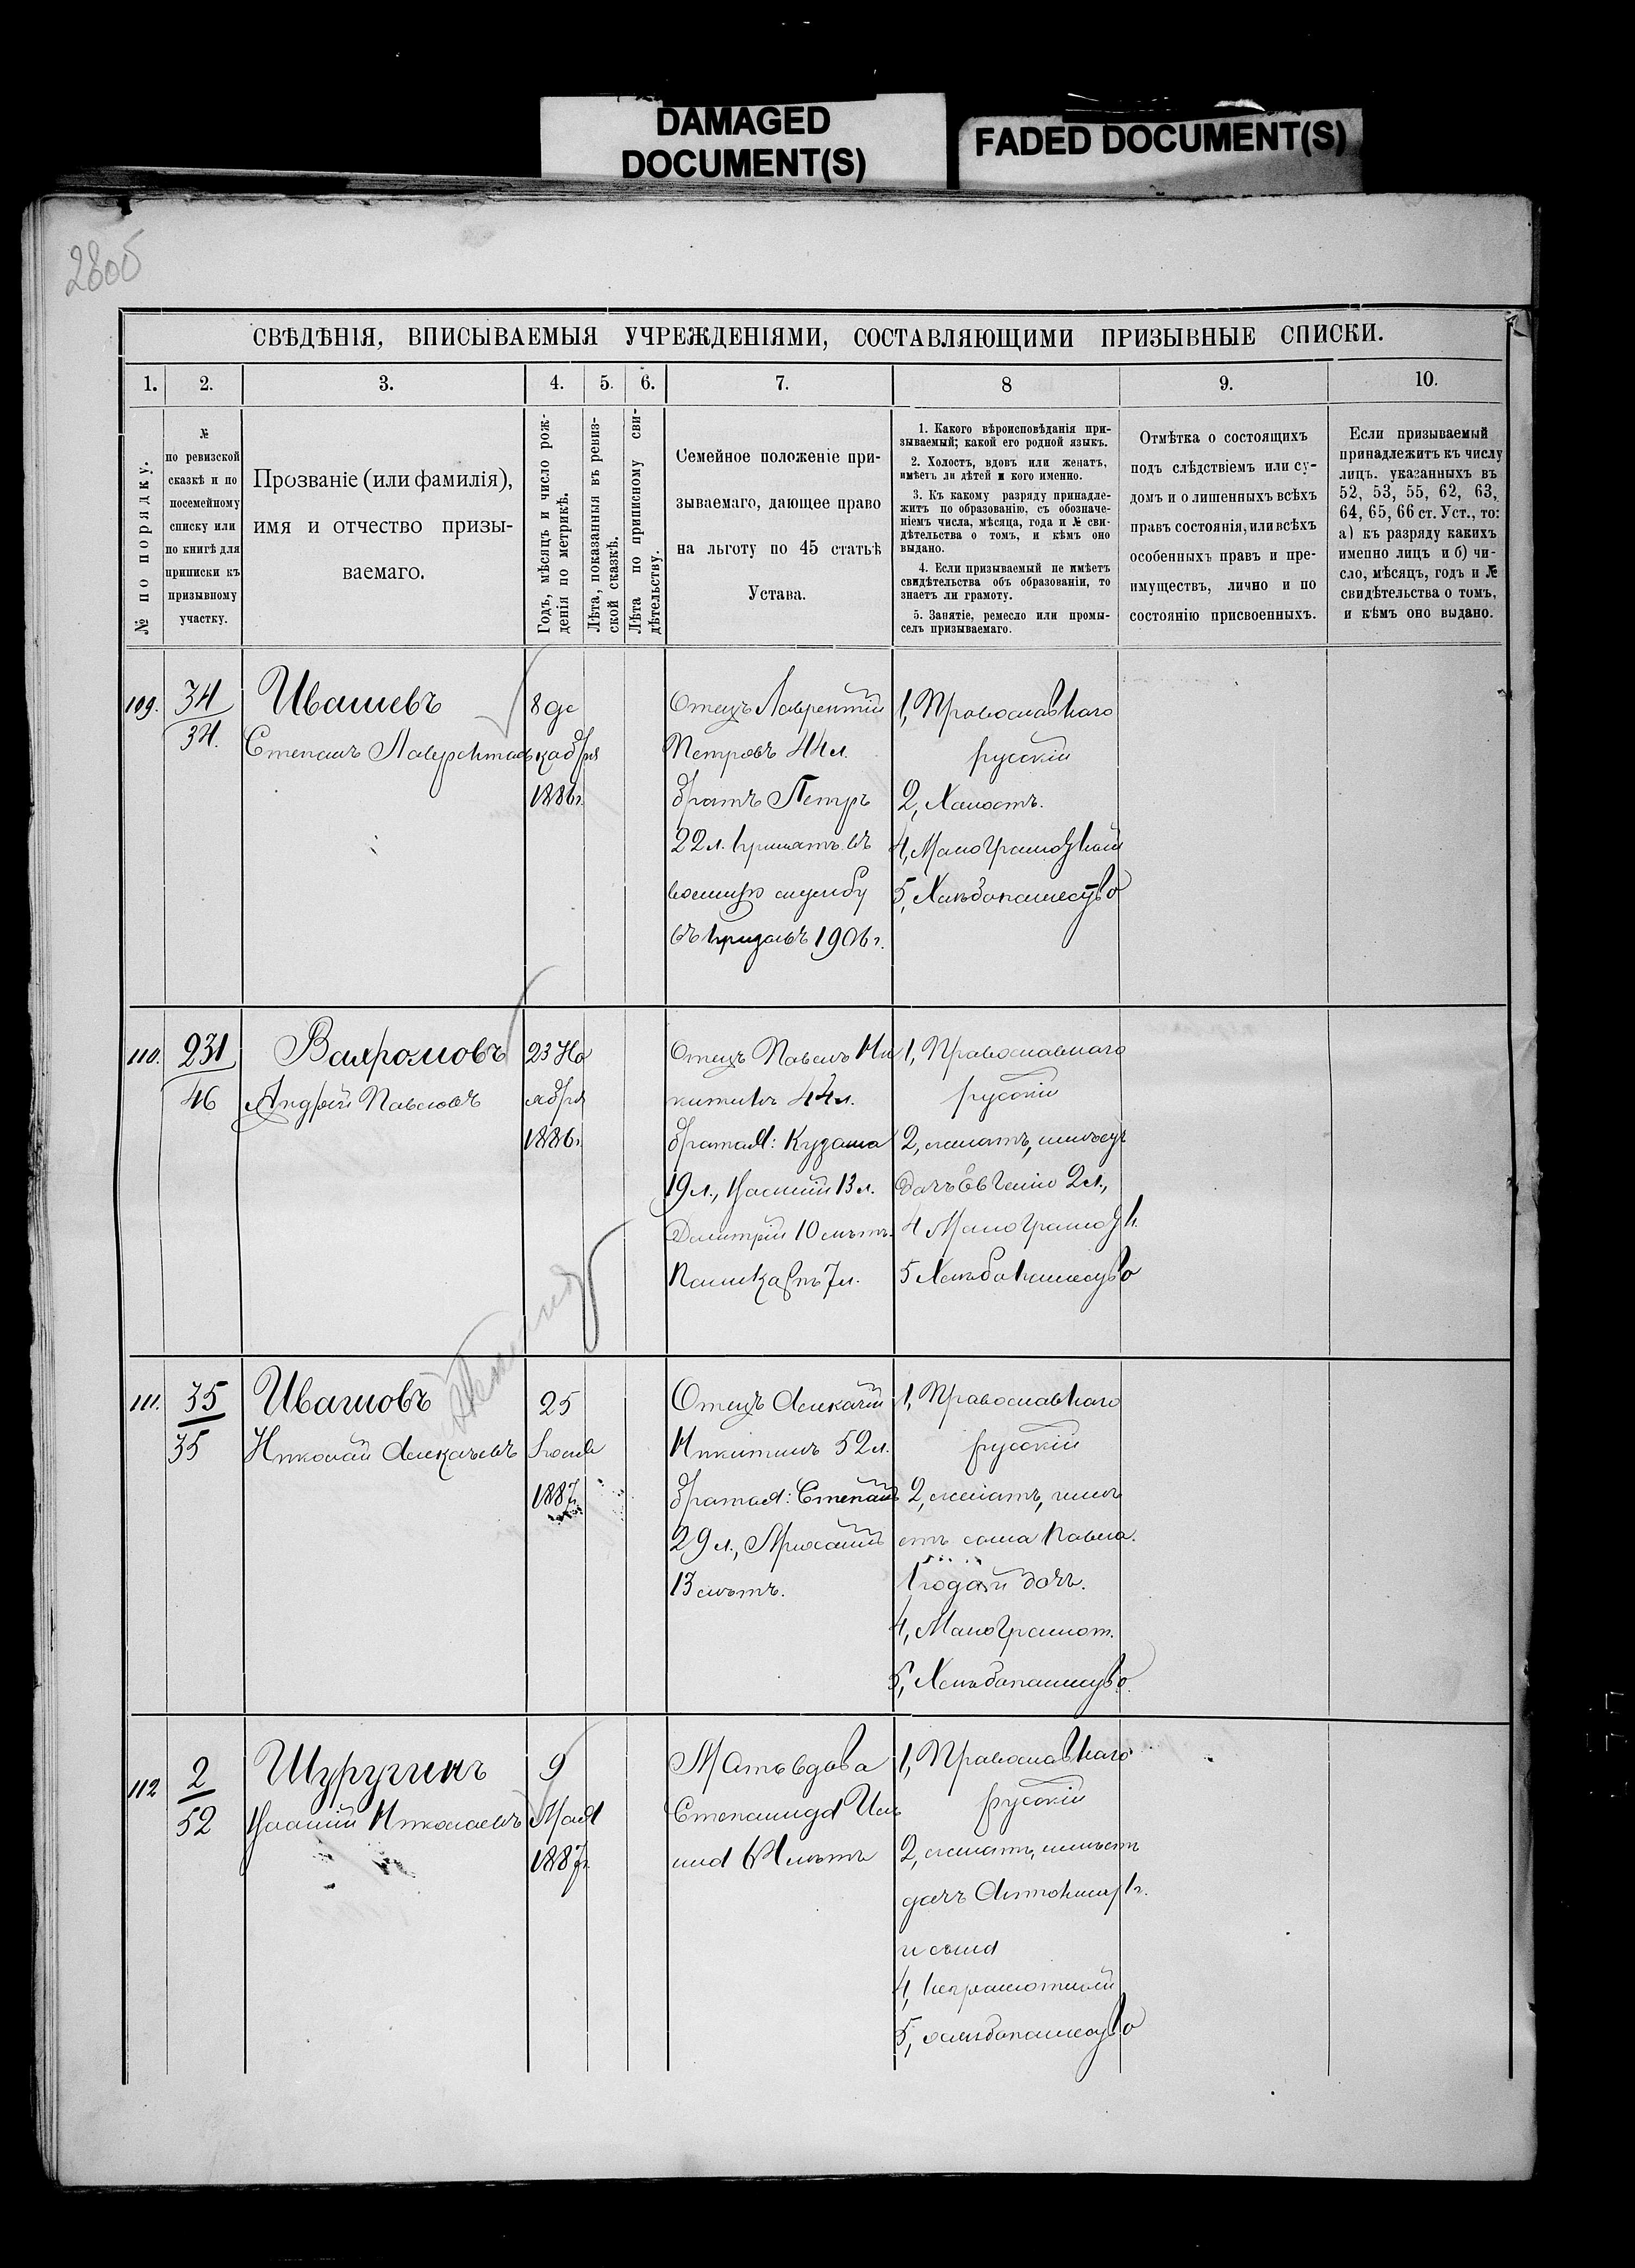 DAMAGED
DOCUMENT(S)
FADED DOCUMENT(S)
280б
СВѢДѢНІЯ, ВПИСЫВАЕМЫЯ УЧРЕЖДЕНІЯМИ, СОСТАВЛЯЮЩИМИ ПРИЗЫВНЫЕ СПИСКИ.
1. 2. 3. 4. 5. 6. 7. 8 9. 10.
№ по порядку.
№
по ревизской
сказкѣ и по
посемейному
списку или
по книгѣ для
приписки къ
призывному
участку.
Прозваніе (или фамилія),
имя и отчество призы-
ваемаго.
Годъ, мѣсяцъ и число рож-
денія по метрикѣ.
Лѣта, показанныя въ ревиз-
ской сказкѣ.
Лѣта по приписному сви-
дѣтельству.
Семейное положеніе при-
зываемаго, дающее право
на льготу по 45 статьѣ
Устава.
1. Какого вѣроисповѣданія при-
зываемый; какой его родной языкъ.
2. Холостъ, вдовъ или женатъ,
имѣетъ ли дѣтей и кого именно.
3. Къ какому разряду принадле-
житъ по образованію, съ обозначе-
ніемъ числа, мѣсяца, года и № сви-
дѣтельства о томъ, и кѣмъ оно
выдано.
4. Если призываемый не имѣетъ
свидѣтельства объ образованіи, то
знаетъ ли грамоту.
5. Занятіе, ремесло или промы-
селъ призываемаго.
Отмѣтка о состоящихъ
подъ слѣдствіемъ или су-
домъ и о лишенныхъ всѣхъ
правъ состоянія, или всѣхъ
особенныхъ правъ и пре-
имуществъ, лично и по
состоянію присвоенныхъ.
Если призываемый
принадлежитъ къ числу
лицъ. указанныхъ въ
52, 53, 55, 62, 63,
64, 65, 66 ст. Уст., то:
а) къ разряду какихъ
именно лицъ и б) чи-
сло, мѣсяцъ, годъ и №
свидѣтельства о томъ,
и кѣмъ оно выдано.
109.
34
34.
Ивашевъ
Степанъ Лаврентьевъ
8 де
кабря
1886г.
Отецъ Лаврентій
Петровъ 44л.
братъ Петръ
22л. принятъ въ
военную службу
въ призывъ 1906г.
1, Православнаго
русскій
2, Холостъ.
4, Малограмотный
5, Хлѣбопашество
110.
231
46
Андрей Павловъ
23 Но
ября
1886г.
Отецъ Павелъ Ни
китинъ 44л.
братья: Кузьма
19л., 13л.
Дмитрій 10 лѣтъ.
7л.
1, Православнаго
русскій
2, женатъ,
дочь Евгенію 2л.,
4 Малограмотн.
5 Хлѣбопашество
111.
35
35
Ивашовъ
Николай Алексѣевъ
25
Іюня
1887г.
Отецъ Алексѣй
Никитинъ 52л.
братья: Степанъ
29л.,
13 лѣтъ.
1, Православнаго
русскій
2, женатъ, имѣ
етъ сына Павла.
1 года и дочь.
4, Малограмот.
5, Хлѣбопашество.
112
2
52
Николаевъ
9
Мая
1887г.
Мать вдова
Степанида Иль
ина лѣтъ
1, Православнаго
русскій
2, женатъ, имѣетъ
дочь
и сына
4, неграмотный
5, хлѣбопашество